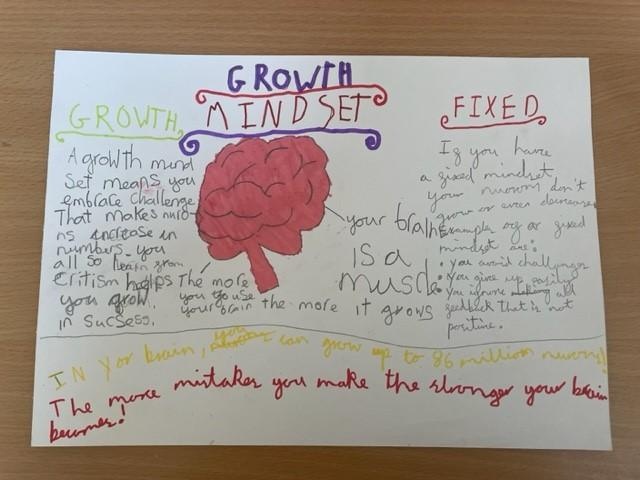 GROWTH
MINDSET
GROWTH
A growth mind
set means you
embrace challenge
That makes nuro
ns increase in
numbers. you
all so learn from
Critism helps
you grow.
in sucsess.
The more
you use
your brain the more
it grows
your brain
is a
muscle
FIXED
If you have
a fixed mindset
your nuorons don't
grow or even decrease
Examples of a fixed
mindset are:
• You avoid challenges
• You give up easily
• You ignore all
feedback that is not
positive.
IN yor brain, you can grow up to 86 million nuorons!
The more mistakes you make the stronger your brain
becomes!